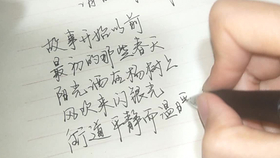 故事开始以前
最初的那些春天
阳光洒在杨树上
风吹来闪银光
街道平静而温暖